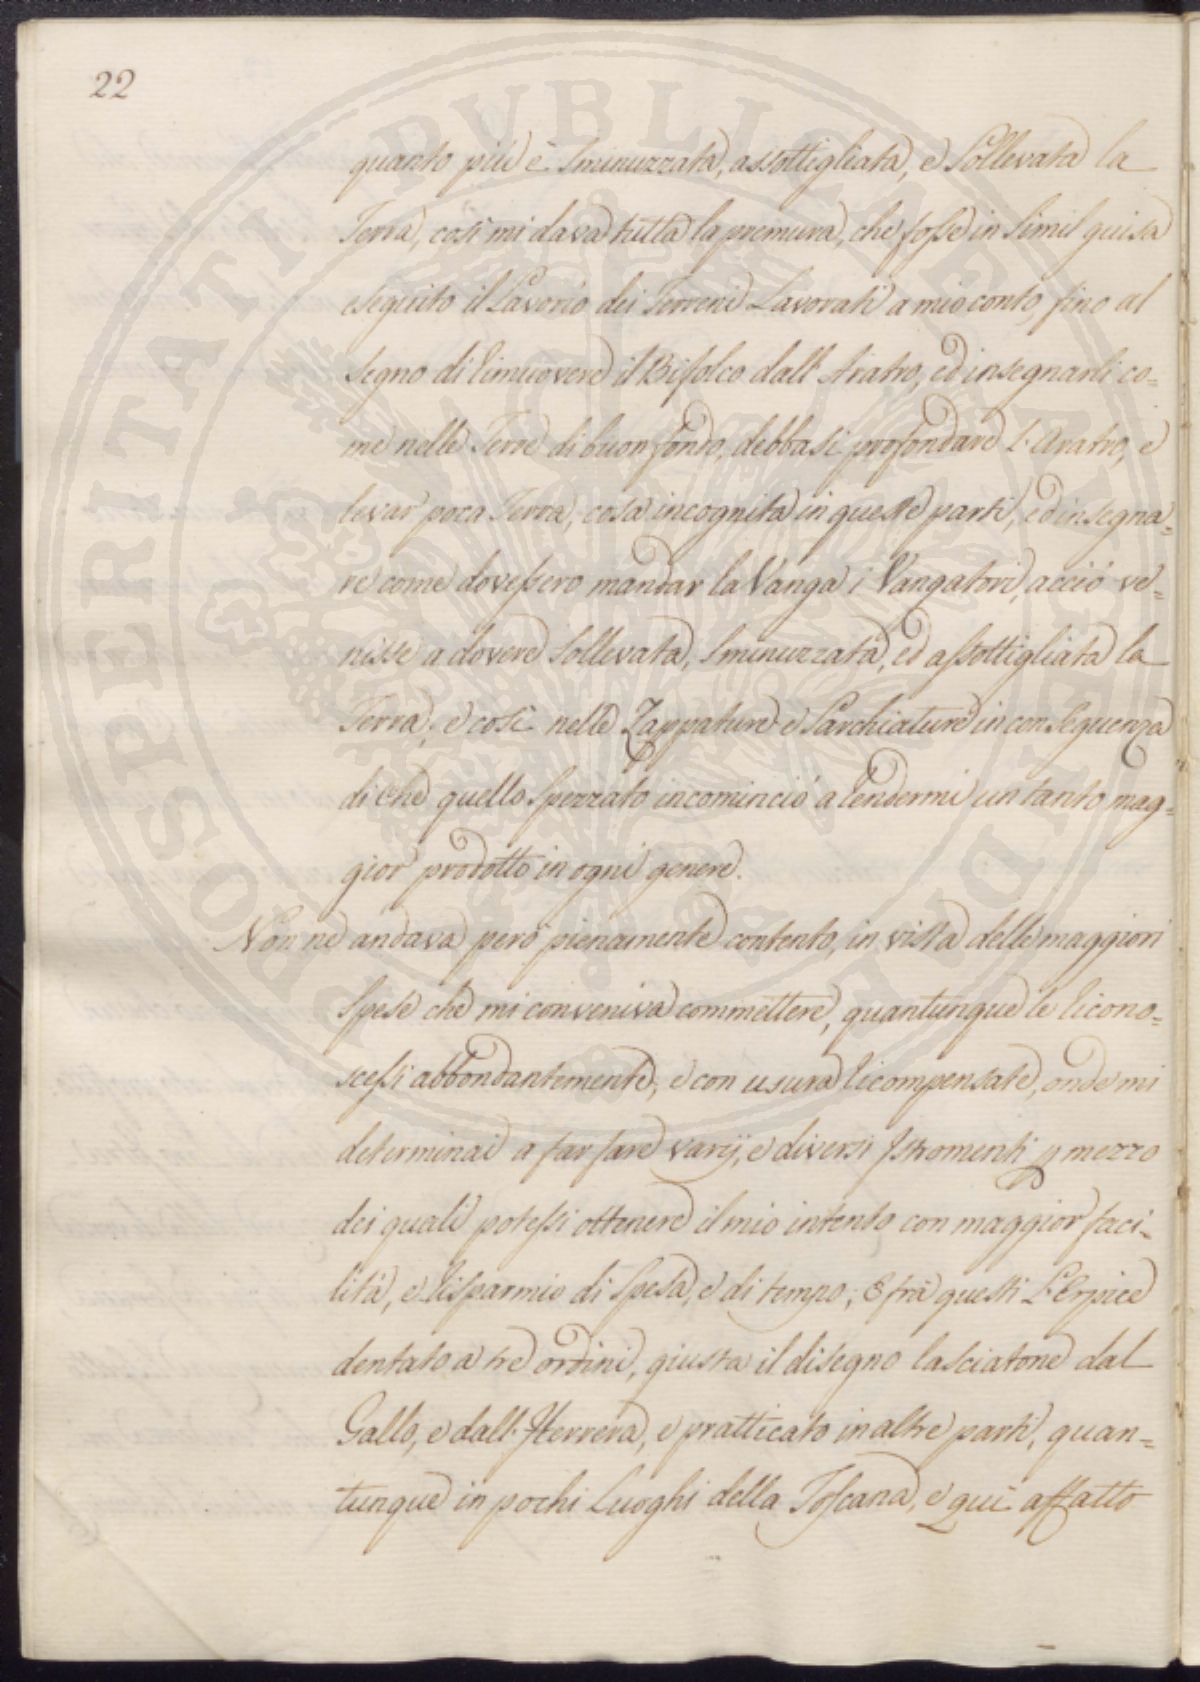 22
quanto più è sminuzzata, assottigliata, e sollevata la
Terra, così mi dava tutta la premura, che fosse in simil guisa
eseguito il Lavorio dei Terreni Lavorati a mio conto, fino al
segno di rimuovere il Bifolco dall'Aratro, ed insegnarli co=
me nelle Terre di buon fondo, debbasi profondare l'Aratro, e
levar poca Terra, cosa incognita in queste parti, ed insegna=
re come dovessero mandar la Vanga i Vangatori, acciò ve=
nisse a dovere sollevata, sminuzzata, ed assottigliata la
Terra, e così nelle Zappature e Sarchiature in conseguenza
di che quello spezzato incominciò a rendermi un tanto mag=
gior prodotto in ogni genere.
Non ne andava però pienamente contento, in vista delle maggiori
spese che mi conveniva commettere, quantunque le ricono=
scessi abbondantemente, e con usura ricompensate, onde mi
determinai a far fare varij, e diversi Istromenti p mezzo
dei quali potessi ottenere il mio intento con maggior faci=
lità, e risparmio di spesa, e di tempo; E frà questi L'Erpice
dentato a tre ordini, giusta il disegno lasciatone dal
Gallo, e dall'Herrera, e pratticato in altre parti, quan=
tunque in pochi Luoghi della Toscana, e quì affatto
PROSPERITATI PVBLICAE AVGENDAE